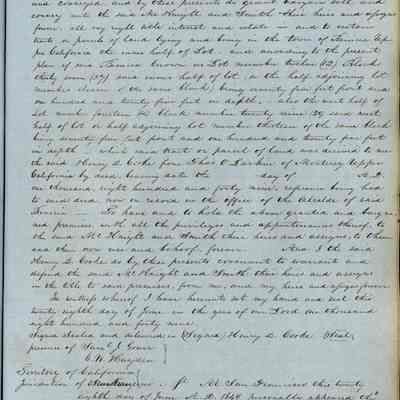 and conveyed, and by these presents do grant bargain sell and
convey unto the said McKnight and Smith their heirs and assigns
forever, all my right title interest and estate in and to certain
tracts or parcels of land lying and being in the town of Benicia Up-
per California the inner half of Lot and according to the present
plan of said Benicia known as Lot number twelve (12) Block
thirty seven (37) said inner half of lot on the half adjoining lot
number eleven of the same block, being seventy five feet front and
one hundred and twenty five feet in depth. also the west half of
Lot number fourteen in block number twenty nine 29 said west
half of lot or half adjoining lot number thirteen of the same block
being seventy five feet front and one hundred and twenty five feet
in depth which said tract or parcel of land was deeded to me
the said Henry D. Cooke from Thos O Larkin of Monterey Upper
California by deed bearing date the day of A.D.
one thousand eight hundred and forty nine, reference being had
to said deed now on record in the office of the Alcalde of said
Benicia — To have and to hold the above granted and bargain-
ed premises with all the privileges and appurtenances thereof to
the said McKnight and Smith their heirs and assigns, to them
and their own use and behoof forever. And I the said
Henry D. Cooke do by these presents covenant to warrant and
defend the said McKnight and Smith their heirs and assigns
in the title to said premises, from me, and my heirs and assigns forever
In witness whereof I have hereunto set my hand and seal this
twenty eighth day of June in the year of our Lord one thousand
eight hundred and forty nine.
Signed Sealed and delivered in (Signed) Henry D. Cooke (Seal)
presence of
C. W. Hayden
Territory of California
Jurisdiction of San Francisco ss. At San Francisco this twenty
eighth day of June A.D. 1849 personally appeared the